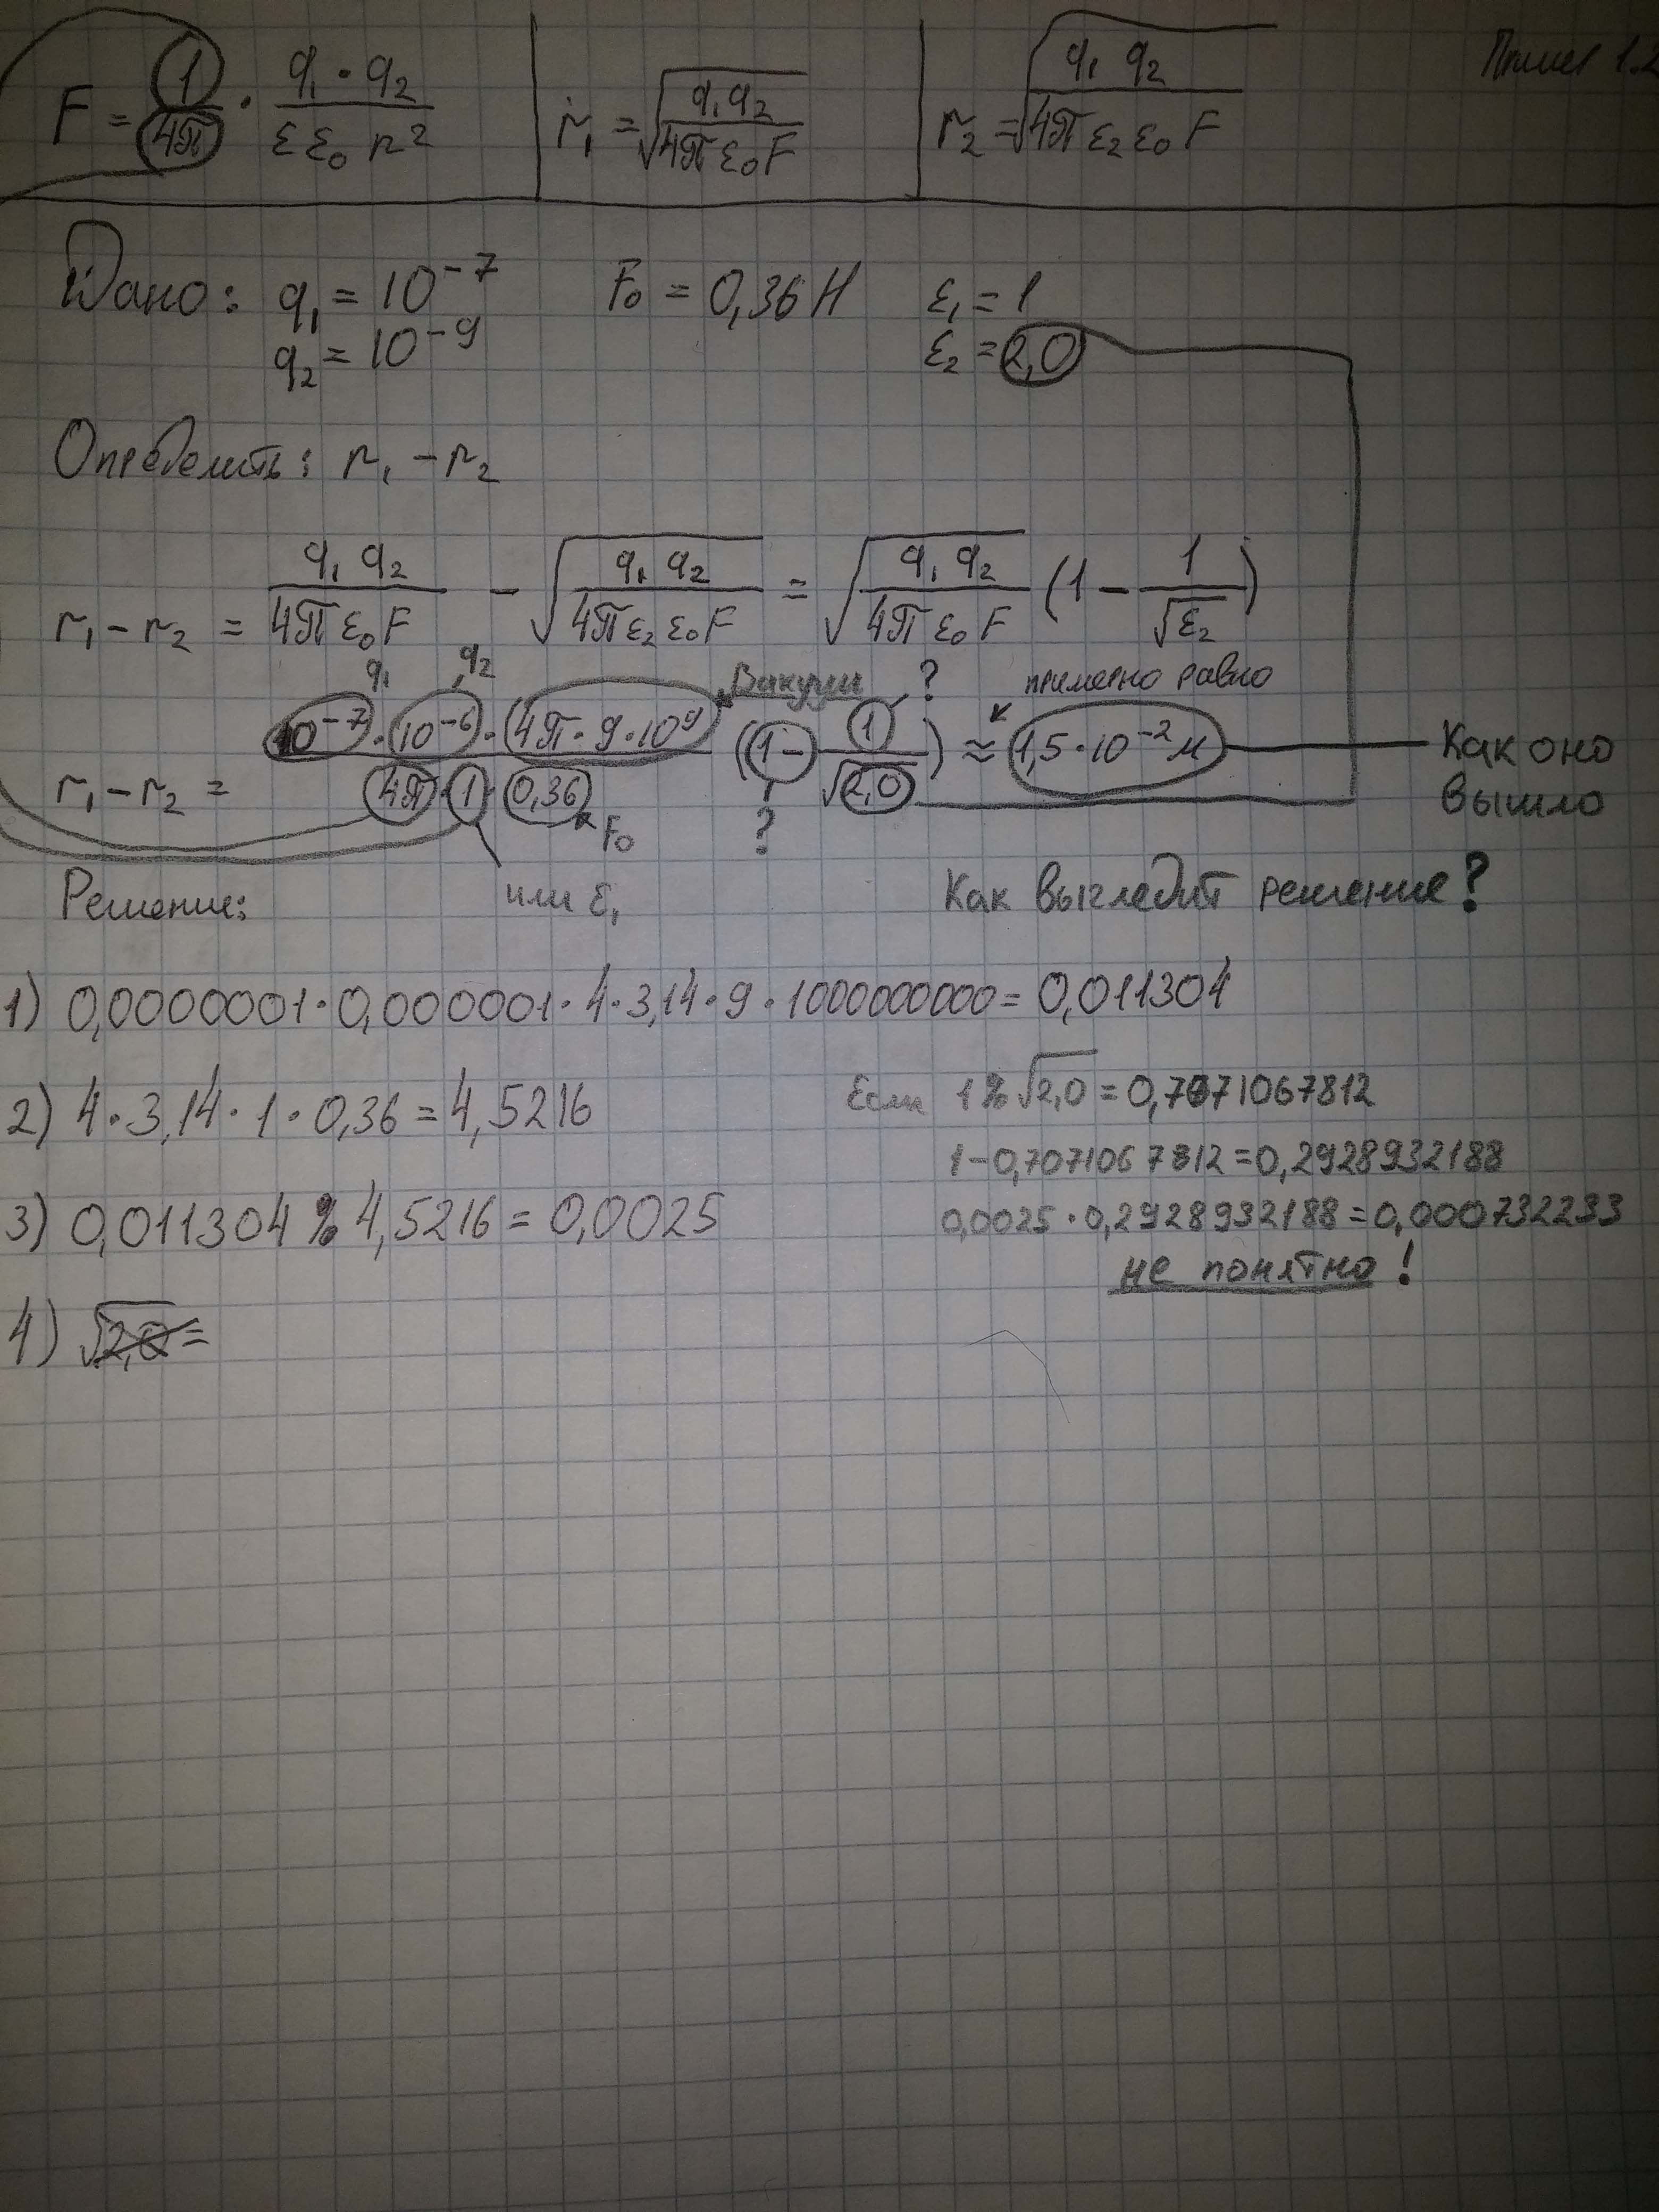 Пример 1.2
F = 1/4π · q₁ · q₂ / εε₀ r²
r₁ = √(q₁ q₂ / 4π ε₀ F)
r₂ = √(q₁ q₂ / 4π ε₂ ε₀ F)
Дано: q₁ = 10⁻⁷ F₀ = 0,36 Н ε₁ = 1
q₂ = 10⁻⁹ ε₂ = 2,0
Определить: r₁ - r₂
r₁ - r₂ = q₁ q₂ / 4π ε₀ F - √(q₁ q₂ / 4π ε₂ ε₀ F) = √(q₁ q₂ / 4π ε₀ F) (1 - 1/√ε₂)
q₁ q₂ Вакуум ? примерно равно
r₁ - r₂ = 10⁻⁷ · 10⁻⁶ · (4π · 9 · 10⁹ / 4π · 1 · 0,36 (1 - 1/√2,0) ≈ 1,5 · 10⁻² м
Как оно
вышло
F₀ ?
Решение: или ε₁ Как выгледит решение?
1) 0,0000001 · 0,000001 · 4 · 3,14 · 9 · 1000000000 = 0,011304
2) 4 · 3,14 · 1 · 0,36 = 4,5216
Если 1 % √2,0 = 0,7071067812
1 - 0,7071067812 = 0,2928932188
3) 0,011304 % 4,5216 = 0,0025
0,0025 · 0,2928932188 = 0,000732233
не понятно!
4) √2,0 =